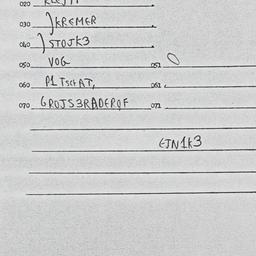 020
030 KREMER
040 STOJK3
050 VOG 051
060 P1TSCHAT, 061
070 GROJS3RADERQF 071
EJN1K3